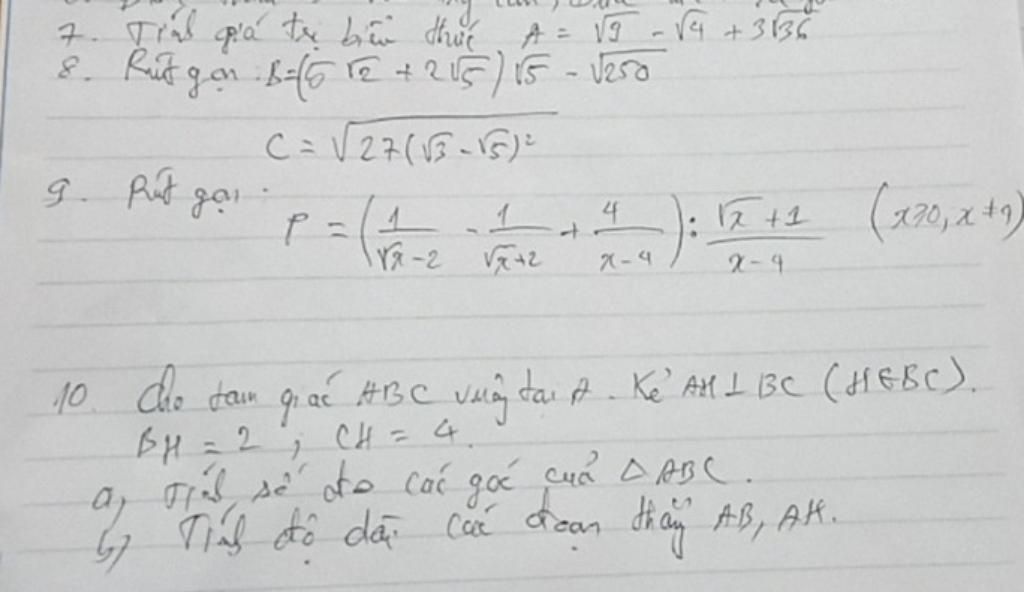 7. Tính giá trị biểu thức A = √9 - √4 + 3√36
8. Rút gọn: B=(5√2 + 2√5)√5 - √250
C = √27(√3 - √5)²
9. Rút gọn:
P = (1/(√x-2) - 1/(√x+2) + 4/(x-4)) : (√x+1)/(x-4) (x≥0, x≠4)
10. Cho tam giác ABC vuông tại A. Kẻ AH⊥BC (H∈BC).
BH = 2 ; CH = 4.
a, Tính số đo các góc của △ABC.
b, Tính độ dài các đoạn thẳng AB, AH.